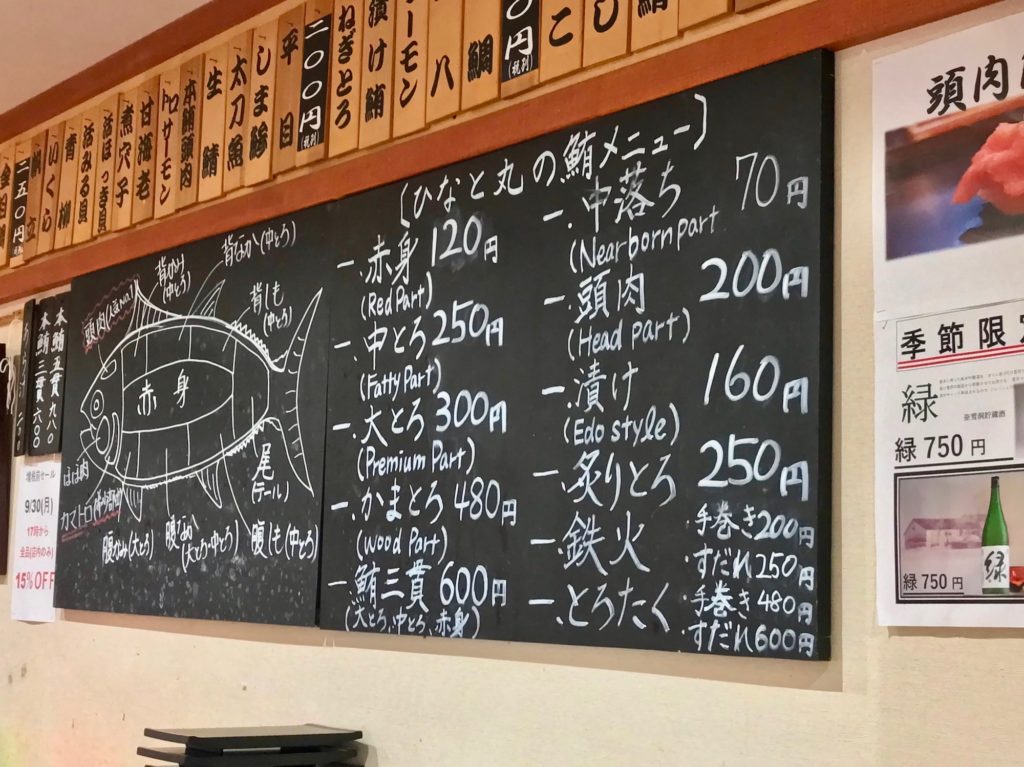 サーモン
漬け鮪
ねぎとろ
二〇〇円(税別)
平目
しま鯵
太刀魚
生鯖
本鮪頭肉
トロサーモン
甘海老
煮穴子
活ほっき貝
活みる貝
青柳
いくら
帆立
二五〇円
鯛
八
円(税別)
こ
し
[ひなと丸の鮪メニュー]
一.赤身 120円
(Red Part)
一.中とろ 250円
(Fatty Part)
一.大とろ 300円
(Premium Part)
一.かまとろ 480円
(Wood Part)
一.鮪三貫 600円
(大とろ、中とろ、赤身)
一.中落ち 70円
(Nearbornpart
一.頭肉 200円
(Head part)
一.漬け 160円
(Edo style)
一.炙りとろ 250円
一.鉄火 ・手巻き200円
・すだれ250円
一.とろたく ・手巻き480円
・すだれ600円
背なか(中とろ)
背かみ(中とろ)
背しも(中とろ)
頭肉(No.1)
赤身
尾(テール)
ほほ肉
カマトロ
腹かみ(大とろ)
腹なか(大とろ・中とろ)
腹しも(中とろ)
本鮪五貫 九八〇
本鮪三貫 六〇〇
増税前セール
9/30(月)
17時から
全品(店内のみ)
15%OFF
頭肉
季節限定
緑
緑 750円
緑
緑 750円